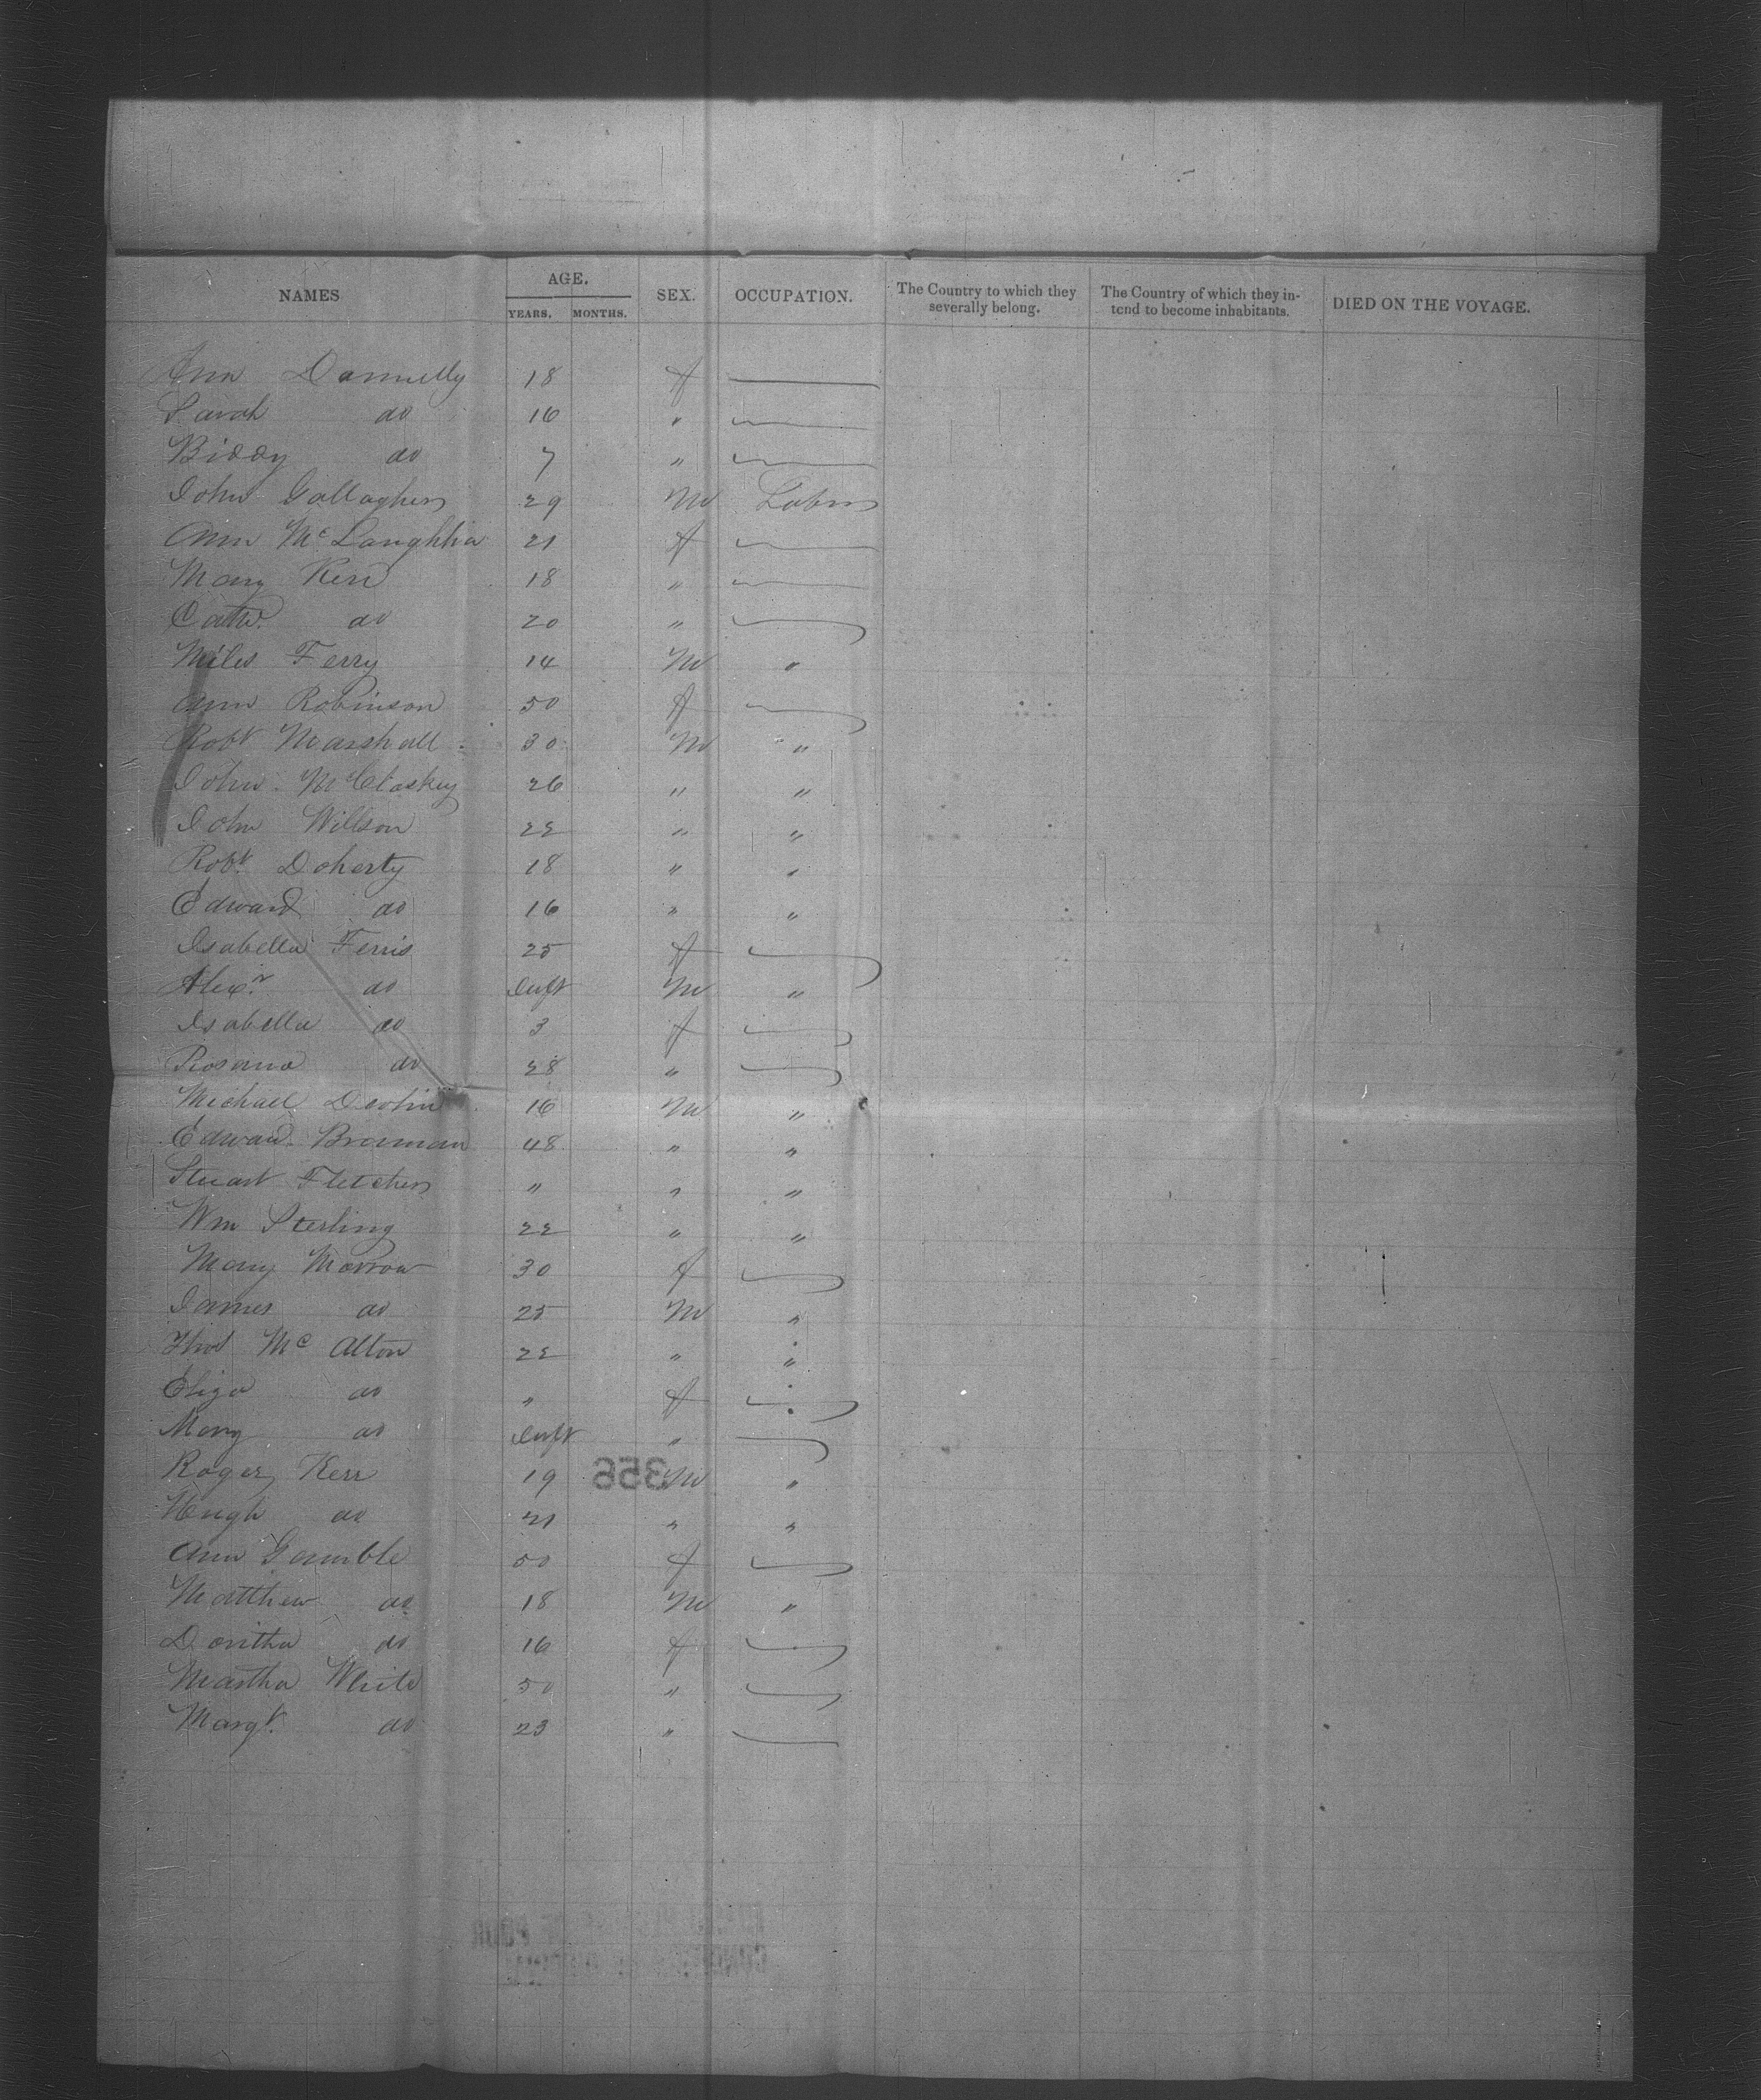 NAMES AGE. YEARS. MONTHS. SEX. OCCUPATION. The Country to which they severally belong. The Country of which they intend to become inhabitants. DIED ON THE VOYAGE.
Ann Donnelly 18 f
Sarah do 16 "
Biddy do 7 "
John Gallagher 29 M Labr
Ann McLaughlin 21 f
Mary Kerr 18 "
Cath. do 20 "
Miles Ferry 14 M "
Ann Robinson 50 f
Robt Marshall 30 M "
John McCloskey 26 " "
John Willson 22 " "
Robt. Doherty 18 " "
Edward do 16 " "
Isabella Ferris 25 f
Alexr do Inft M "
Isabella do 3 f
Rosanna do 28 "
Michael Devlin 16 M "
Edward Brannan 48 " "
Stuart Fletcher " " "
Wm Sterling 22 " "
Mary Morrow 30 f
James do 25 M "
Thos Mc Alton 22 " "
Eliza do " f
Mary do Inft "
Roger Kerr 19 M "
356
Hugh do 21 " "
Ann Gamble 50 f
Matthew do 18 M "
Doritha do 16 f
Martha White 50 "
Margt. do 23 "